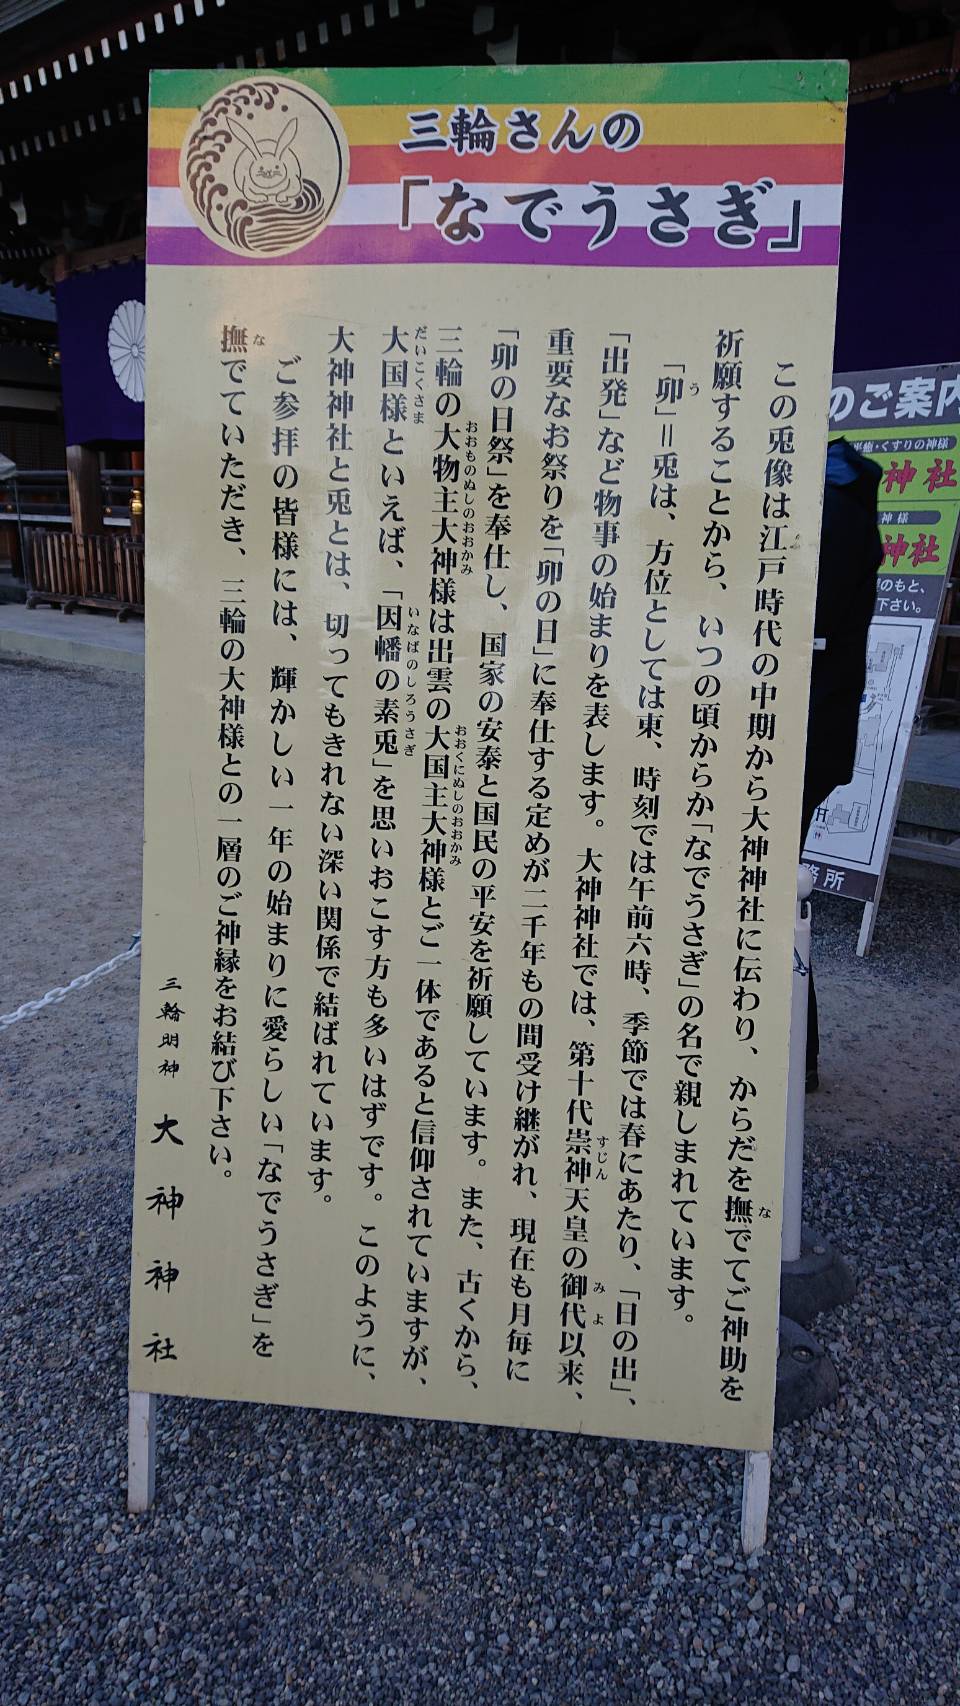 三輪さんの
「なでうさぎ」
この兎像は江戸時代の中期から大神神社に伝わり、からだを撫でてご神助を
な
祈願することから、いつの頃からか「なでうさぎ」の名で親しまれています。
「卯」＝兎は、方位としては東、時刻では午前六時、季節では春にあたり、「日の出」、
う
「出発」など物事の始まりを表します。大神神社では、第十代崇神天皇の御代以来、
すじん
みよ
重要なお祭りを「卯の日」に奉仕する定めが二千年もの間受け継がれ、現在も月毎に
「卯の日祭」を奉仕し、国家の安泰と国民の平安を祈願しています。また、古くから、
三輪の大物主大神様は出雲の大国主大神様とご一体であると信仰されていますが、
おおものぬしのおおかみ
おおくにぬしのおおかみ
大国様といえば、「因幡の素兎」を思いおこす方も多いはずです。このように、
だいこくさま
いなばのしろうさぎ
大神神社と兎とは、切ってもきれない深い関係で結ばれています。
ご参拝の皆様には、輝かしい一年の始まりに愛らしい「なでうさぎ」を
撫でていただき、三輪の大神様との一層のご神縁をお結び下さい。
な
三輪明神 大神神社
のご案内
くすりの神様
神社
神様
神社
のもと、
下さい。
務所